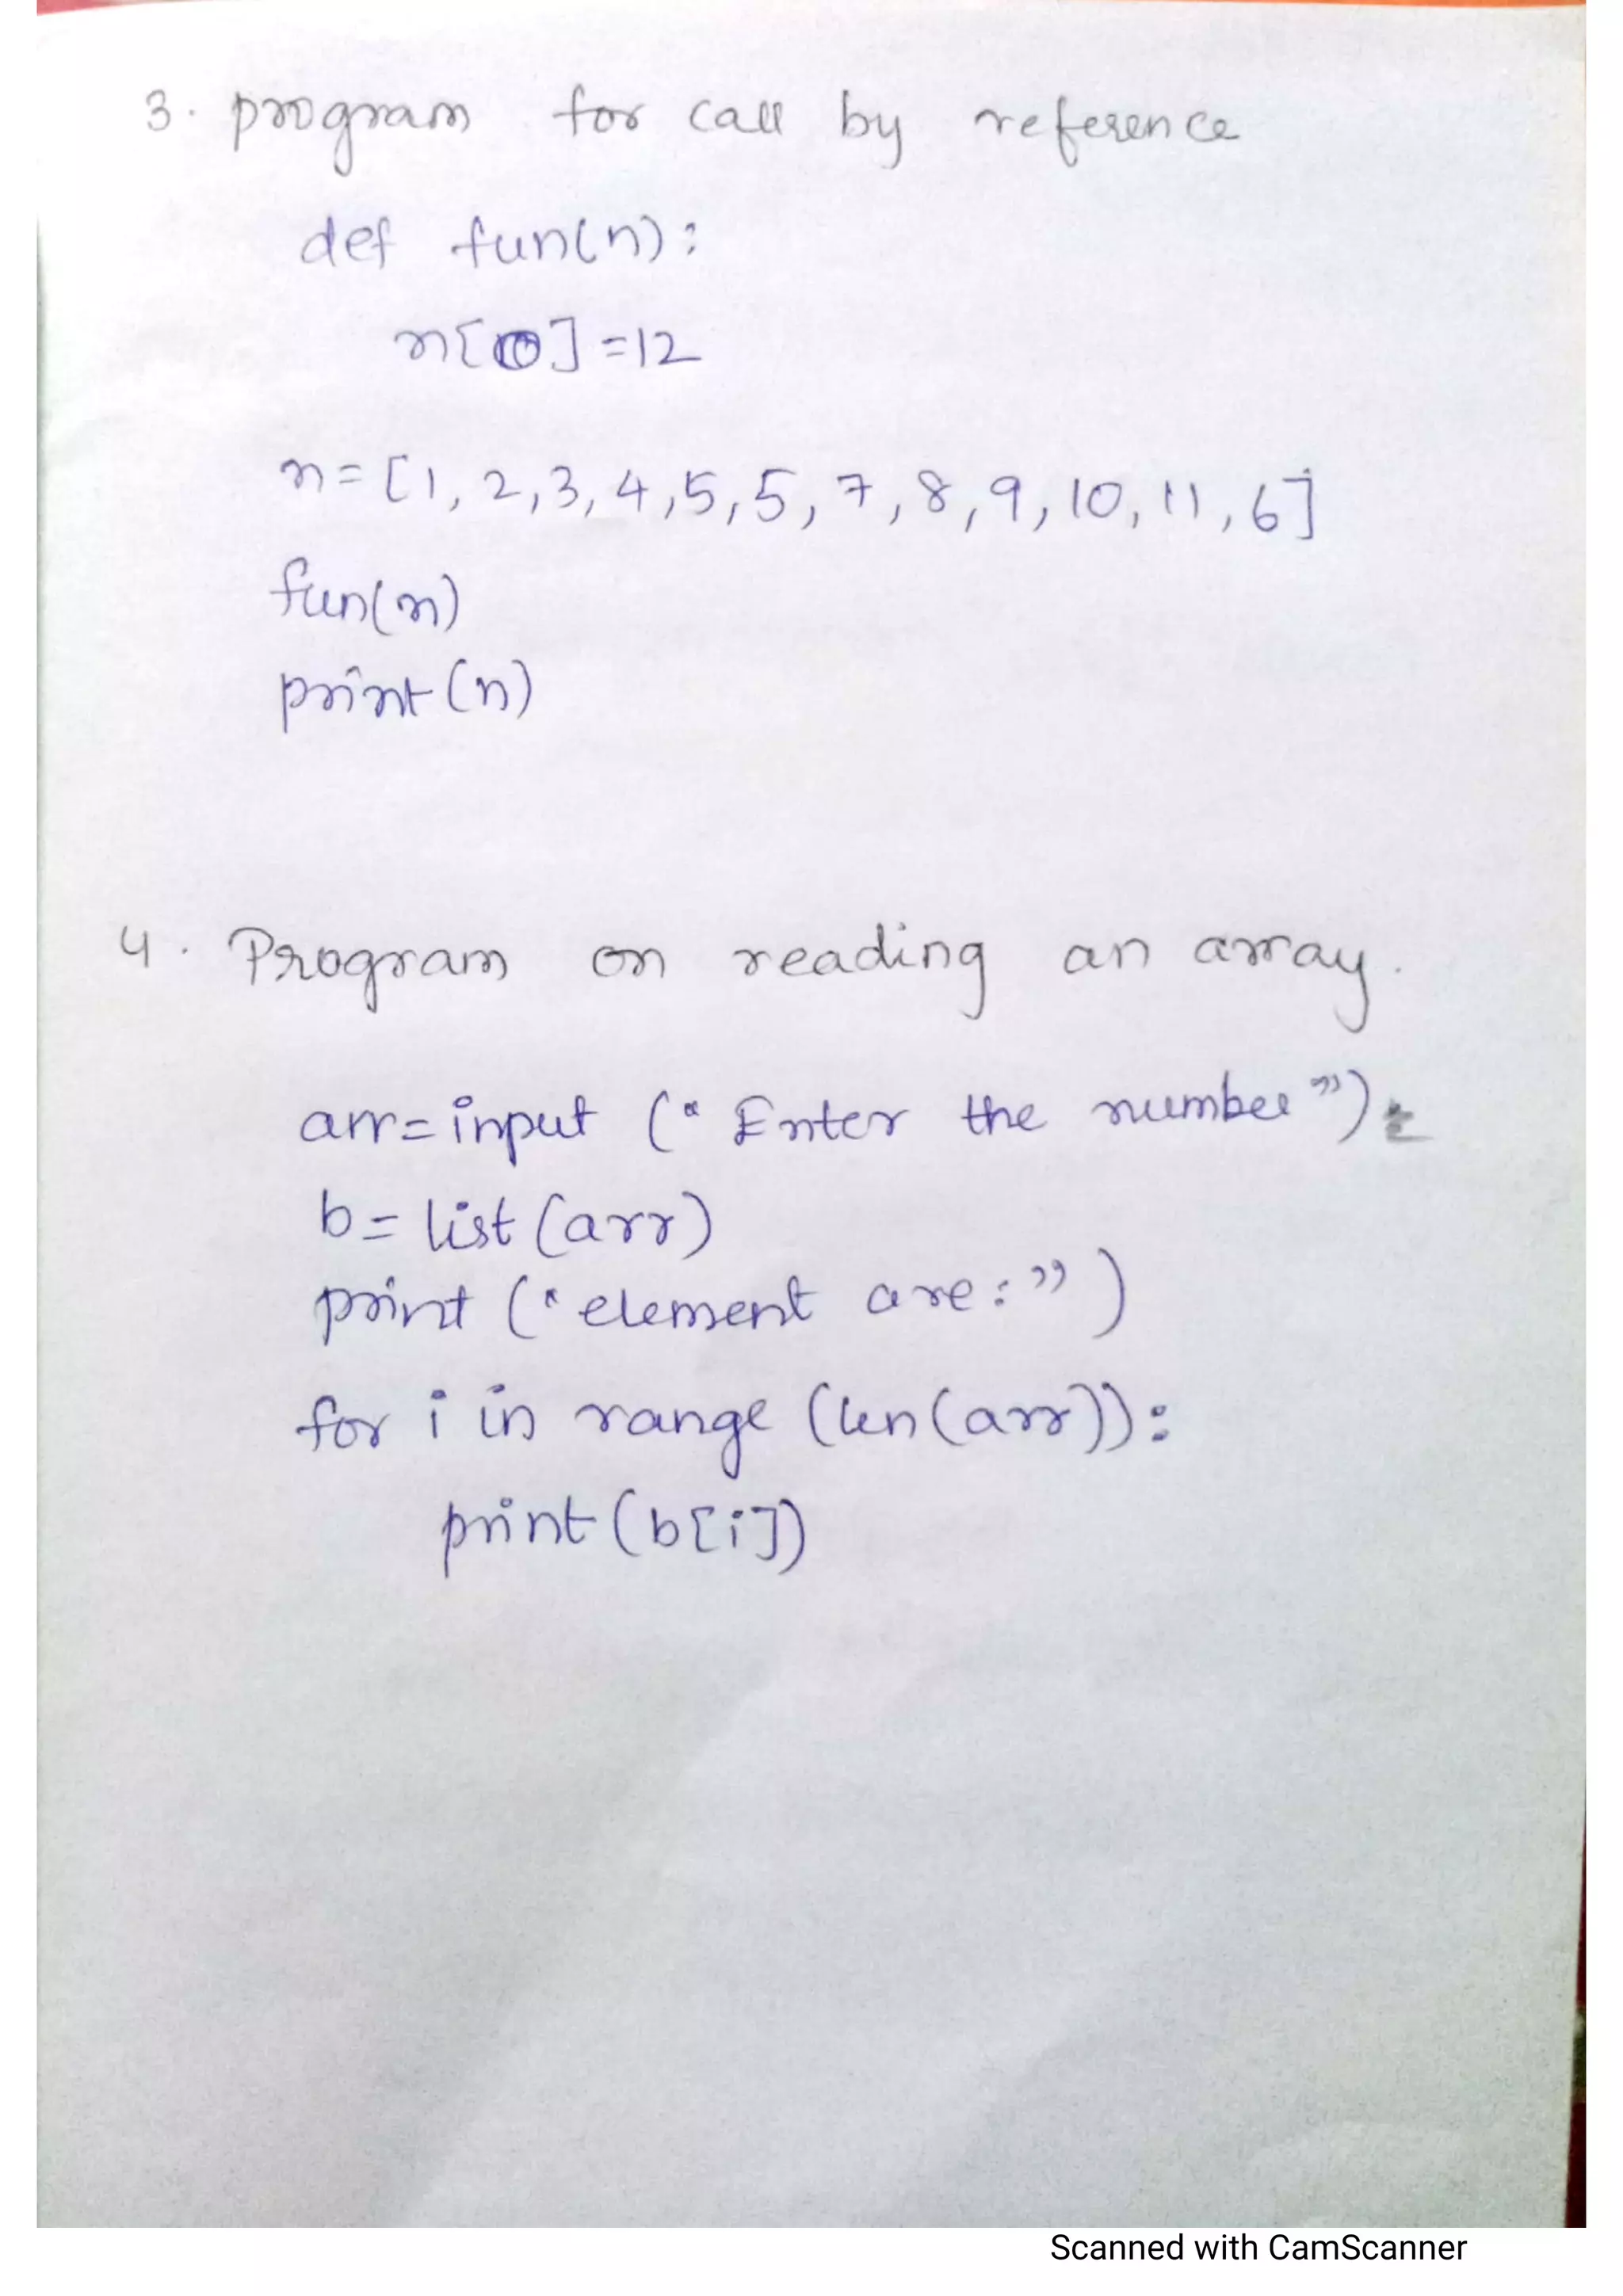 3. program for call by reference
def fun(n):
n[0]=12
n=[1,2,3,4,5,5,7,8,9,10,11,6]
fun(n)
print(n)
4. Program on reading an array.
arr=input ("Enter the number")
b= list (arr)
print ("element are:")
for i in range (len(arr)):
print(b[i])
Scanned with CamScanner